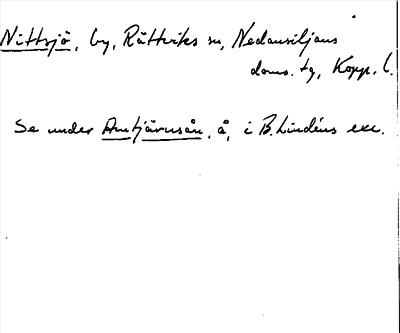 Nittsjö, by, Rättviks sn, Nedansiljans
doms. tg, Kopp. l.
Se under Amtjärnsån, å, i B. Lindéns exc.